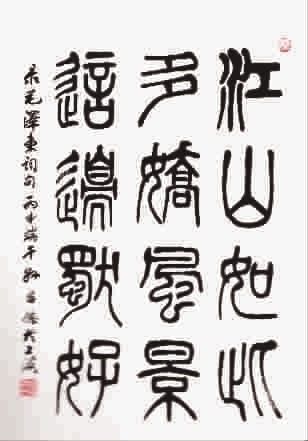 江山如此
多嬌風景
這邊獨好
录毛澤東詞句 丙申端午